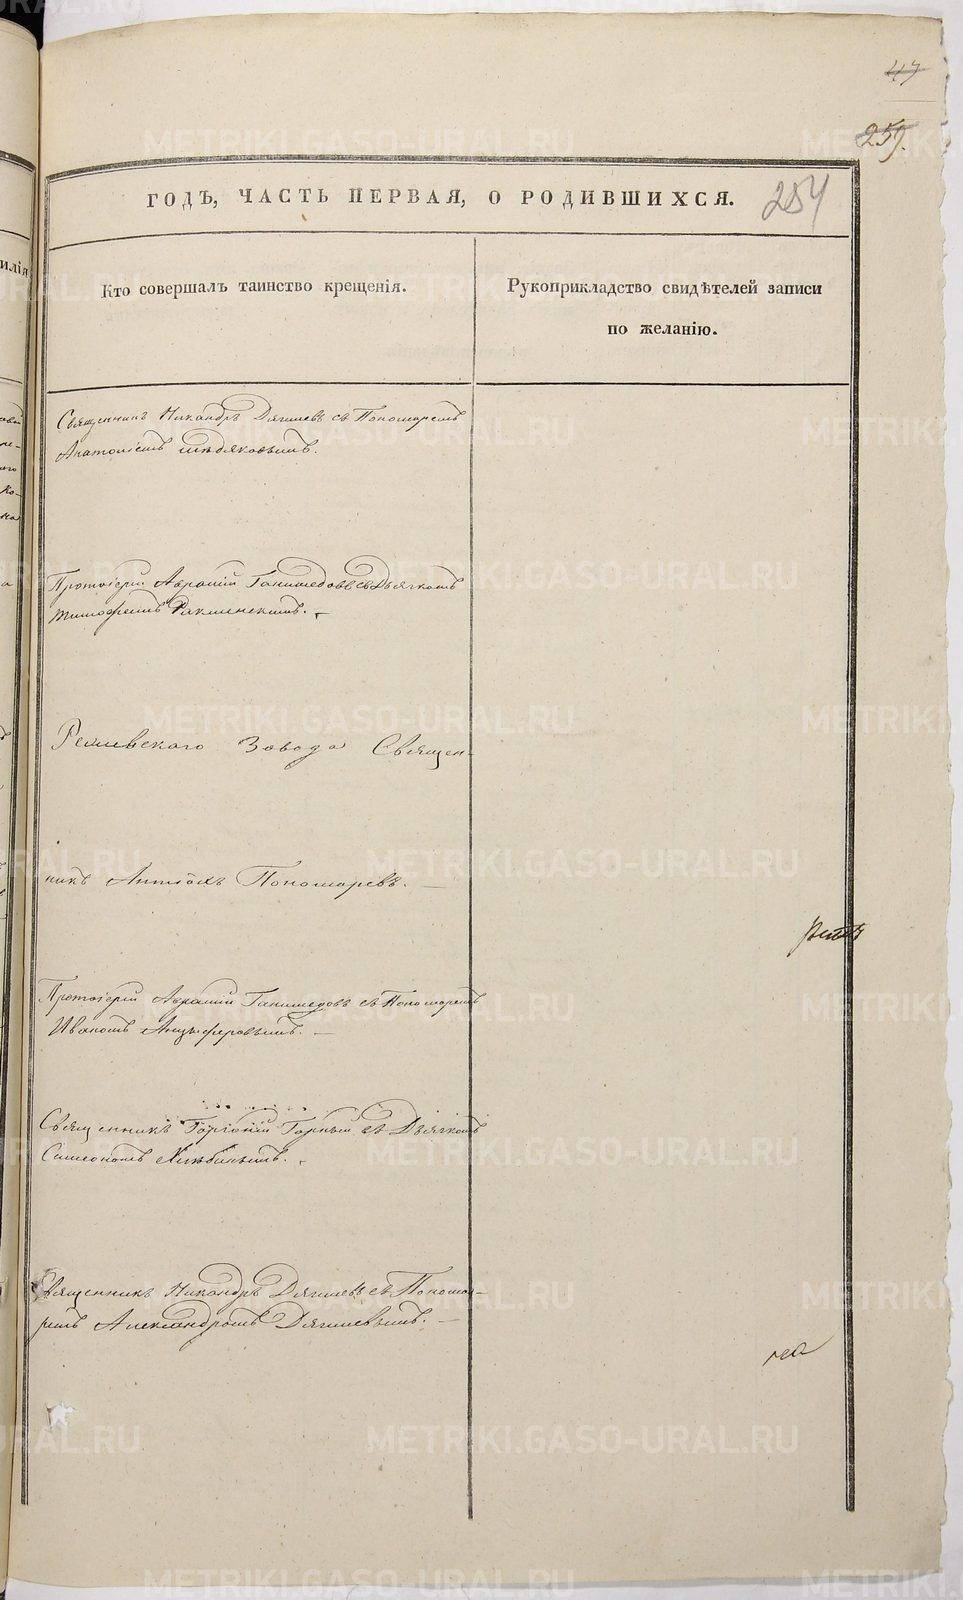 47
259.
254
ГОДЪ, ЧАСТЬ ПЕРВАЯ, О РОДИВШИХСЯ.
Кто совершалъ таинство крещенія.
Рукоприкладство свидѣтелей записи
по желанію.
Священникъ Никандръ Дягилевъ съ Пономаремъ
Анатоліемъ
Протоіерей Аврамій Ганимедовъ съ Дьячкомъ
Тимофеемъ
Режевского Завода Священ-
никъ Антіохъ Пономаревъ. —
Протоіерей Аврамій Ганимедовъ съ Пономаремъ
Иваномъ Анцыферовымъ. —
Священникъ Горгоній Горный съ Дьячкомъ
Симеономъ Хлѣбинымъ.
Священникъ Никандръ Дягилевъ съ Понома-
ремъ Александромъ Дягилевымъ. —
METRIKI.GASO-URAL.RU